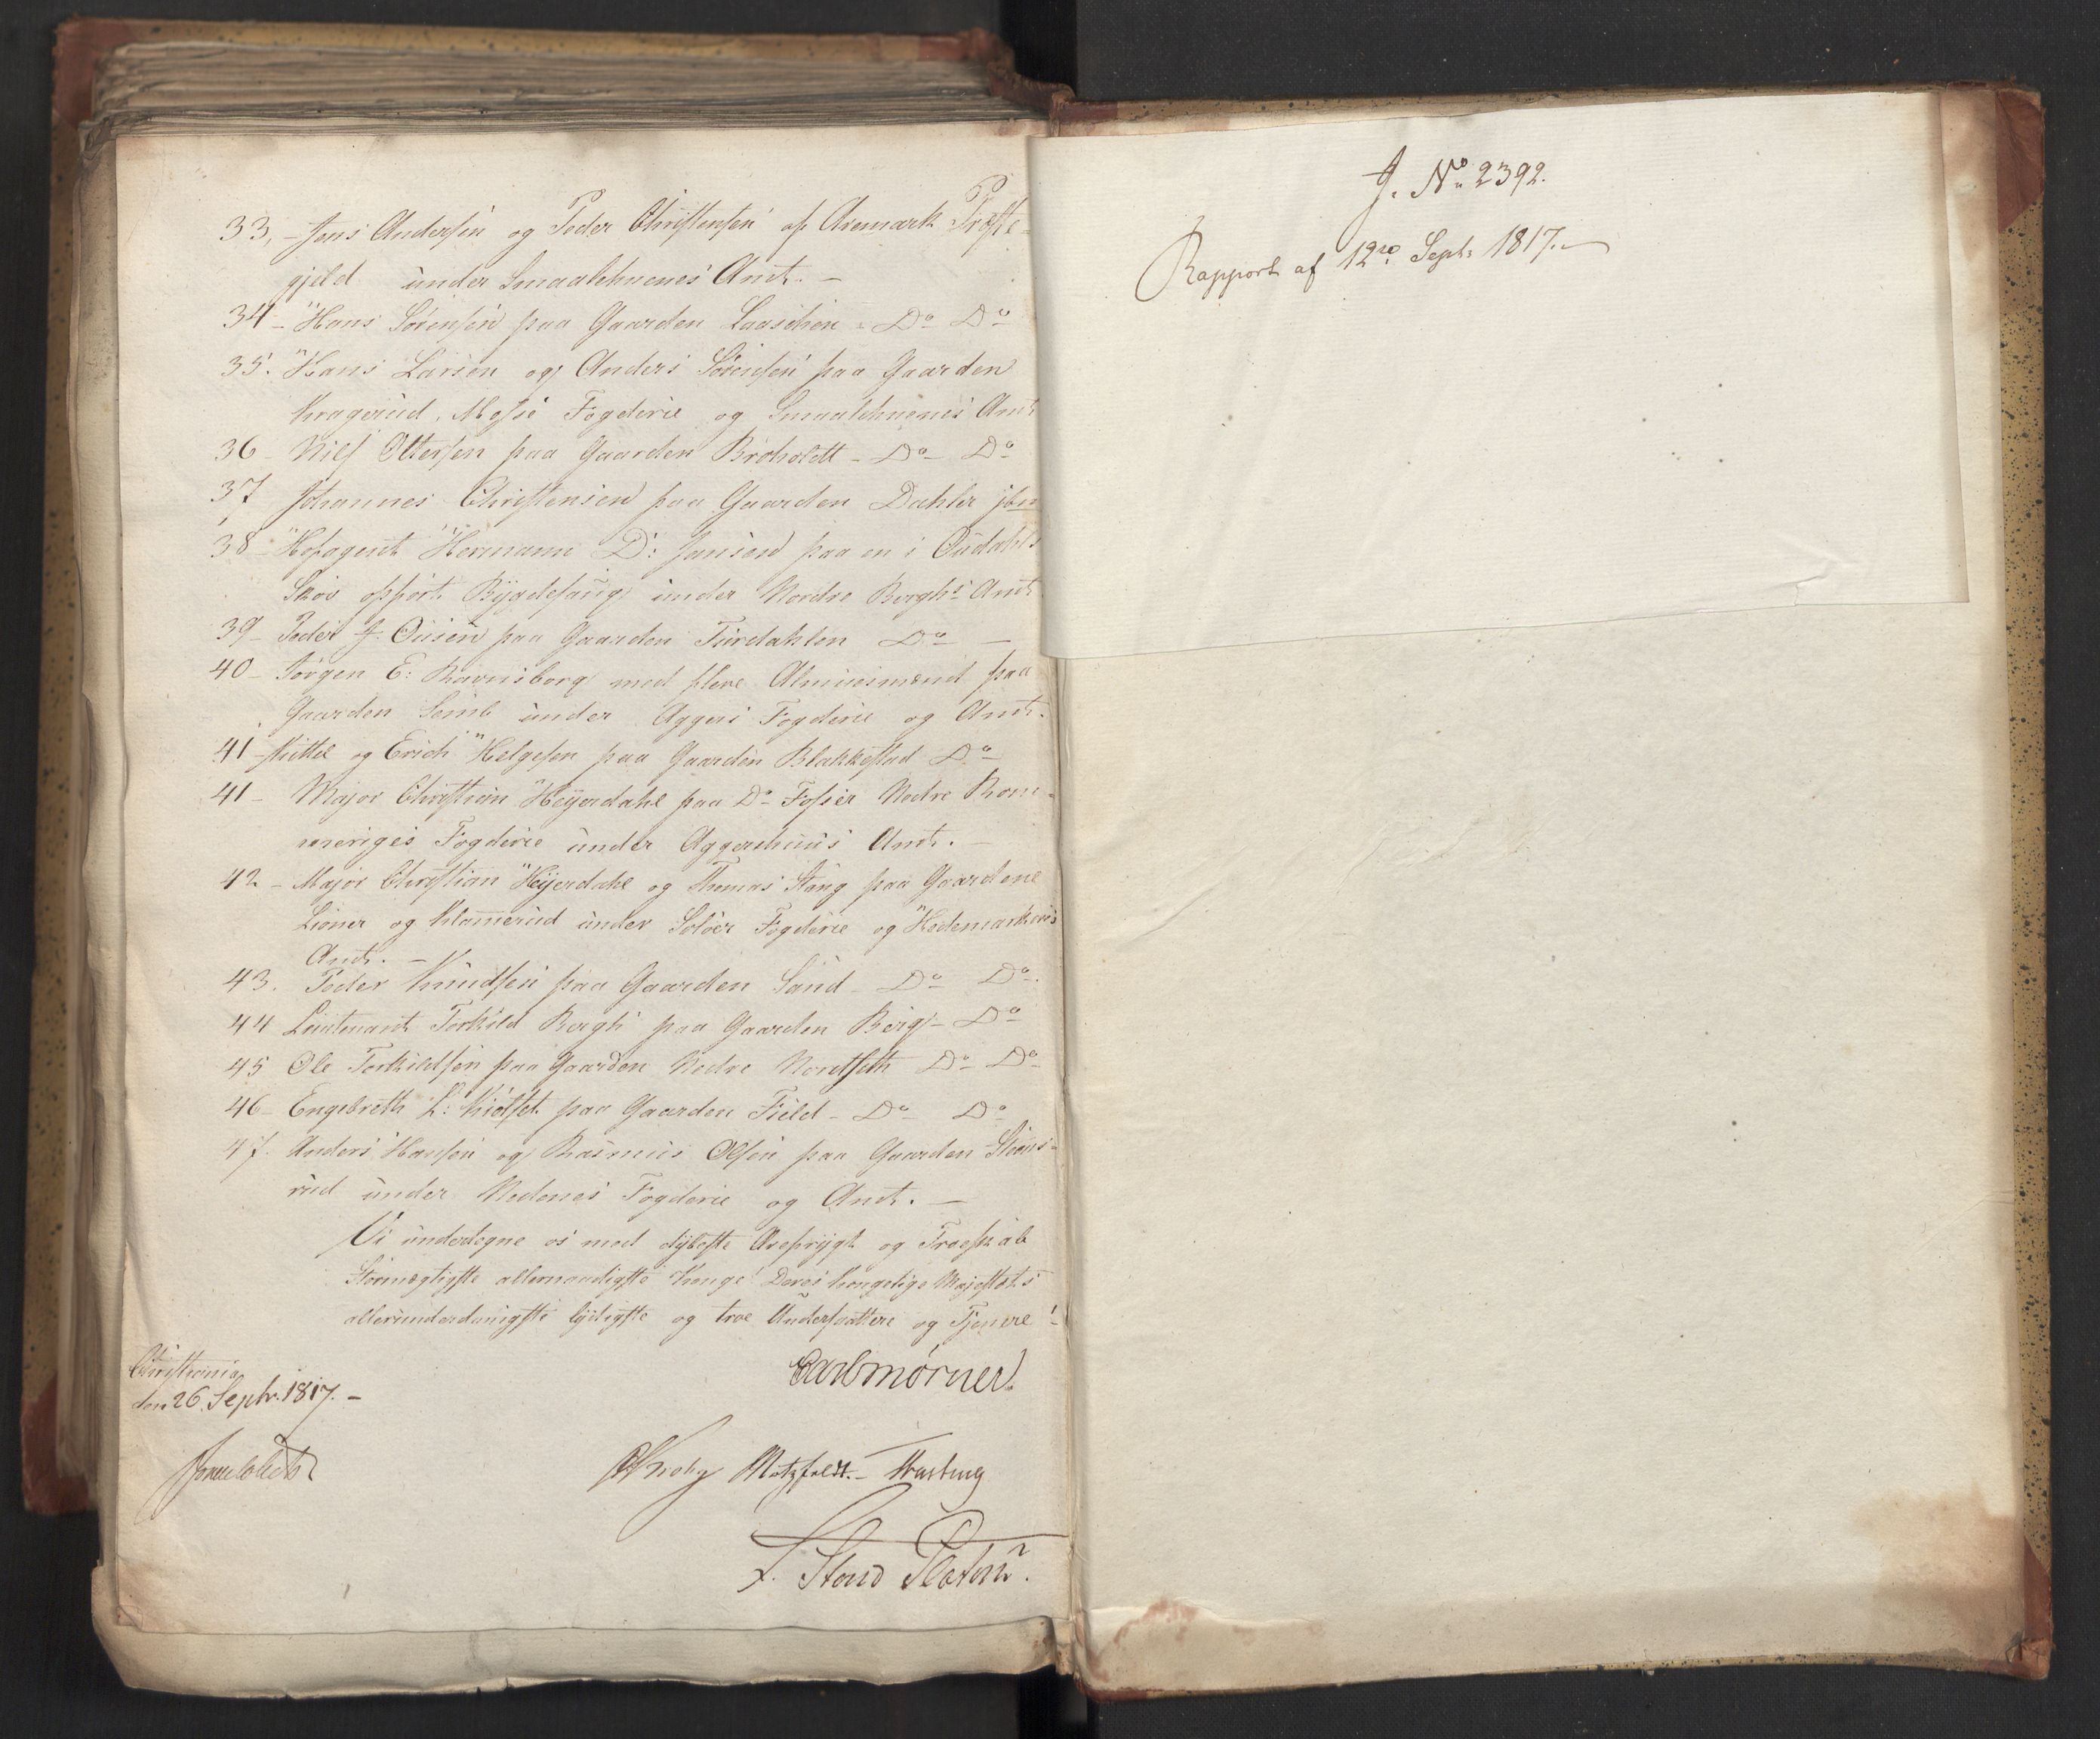 33, - Jens Andersen og Peder Christensen af Aremark Præste-
gjeld under Smaalehnenes Amt. -
34 - Hans Sørensen paa Gaarden Laaschen - Do Do
35. Hans Larsen og Anders Sørensen paa Gaarden
Kragerud, Mosse Fogderie og Smaalehnenes Amt
36 - Nils Ottersen paa Gaarden Broholdt - Do - Do
37 Johannes Christensen paa Gaarden Dahler ibm
38 - Hofagent Hermann D: Jansen paa en i Oudahls
Skov opført Bygdesaug under Nordre Bergh: Amt
39 - Peder J: Ousen paa Gaarden Turdahlen Do -
40 - Jørgen E: Ravnsborg med flere Almuesmænd paa
Gaarden Semb under Aggers Fogderie og Amt.
41 - Kittel og Erich Helgesen paa Gaarden Blakkestad Do
41 - Major Christian Heyerdahl paa Do Fosser Nedre Rom-
meriges Fogderie under Aggershuus Amt. -
42 - Major Christian Heyerdahl og Thomas Stang paa Gaardene
Lioner og Klamerud under Soløer Fogderie og Hedemarkens
Amt. -
43. Peder Knudsen paa Gaarden Sand - Do Do.
44 Lieutenant Torkild Bergh paa Gaarden Berg - Do
45 Ole Torkildsen paa Gaarden Nedre Nordseth Do Do
46 - Engebreth L: Kiølset paa Gaarden Field - Do Do
47. Anders Hansen og Rasmus Olsen paa Gaarden Steens-
rud under Nedenes Fogderie og Amt. -
Vi undertegne os med dybeste Ærefrygt og Troeskab
Stormægtigste allernaadigste Konge! Deres Kongelige Majestæts
allerunderdanigste lydigste og troe Undersaattere og Tjenere!
Carl Mörner.
Christiania
den 26. Septr. 1817. -
Krohg Motzfeldt. - Hasting
f. Stand Platou.
J. No 2392.
Rapport af 12te Sept: 1817. -